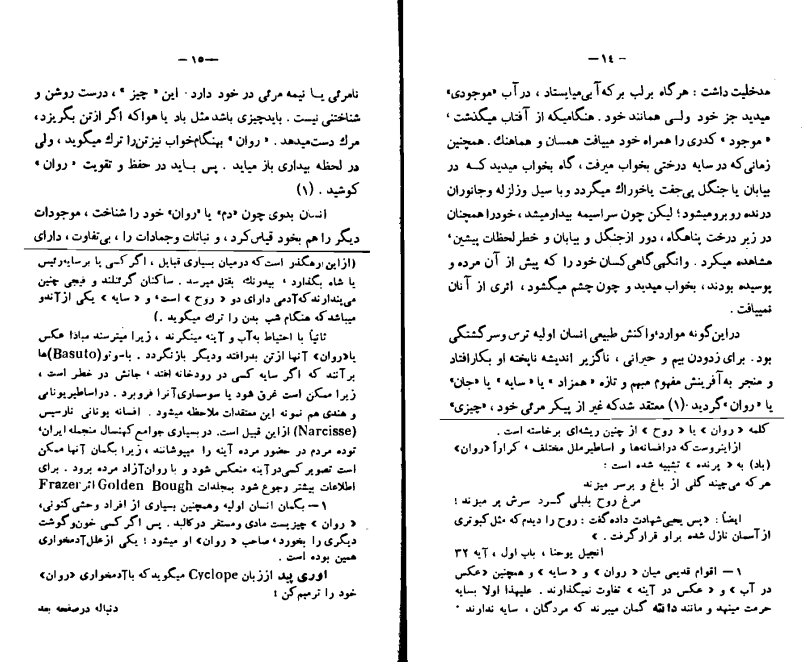 - ۱٤ -
مدخلیت داشت : هرگاه برلب برکه‌آبی میایستاد ، در آب «موجودی»
میدید جز خود ولی همانند خود . هنگامیکه از آفتاب میگذشت ،
«موجود» کدری را همراه خود مییافت همسان و هماهنك . همچنین
زمانی‌که در سایه درختی بخواب میرفت ، گاه بخواب میدید کـه در
بیابان یا جنگل پی جفت یاخوراك میگردد و با سیل وزلزله وجانوران
درنده روبرومیشود ؛ لیکن چون سراسیمه بیدارمیشد ، خودراهمچنان
در زیر درخت پناهگاه ، دور ازجنگل و بیابان و خطر لحظات پیشین ،
مشاهده میکرد . وانگهی گاهی کسان خود را که پیش از آن مرده و
پوسیده بودند ، بخواب میدید و چون چشم میگشود ، اثری از آنان
نمییافت .
دراین‌گونه موارد ، واکنش طبیعی انسان اولیه ترس وسرگشتگی
بود . برای زدودن بیم و حیرانی ، ناگزیر اندیشه ناپخته او بکارافتاد
و منجر به‌آفرینش مفهوم مبهم و تازه «همزاد» یا «سایه» یا «جان»
یا «روان» گردید . (۱) معتقد شدکه غیر از پیکر مرئی خود ، «چیزی»
کلمه «روان» یا «روح» از چنین ریشه‌ای برخاسته است .
ازاینروست که درافسانه‌ها و اساطیرملل مختلف ، کراراً «روان»
(باد) به «پرنده» تشبیه شده است :
هر که می‌چیند گلی از باغ و برسر میزند
مرغ روح بلبلی گـرد سرش پر میزند ؛
ایضاً : «پس یحیی شهادت داده گفت : روح را دیدم که مثل کبوتری
از آسمان نازل شده براو قرارگرفت .»
انجیل یوحنا ، باب اول ، آیه ۳۲
۱ – اقوام قدیمی میان «روان» و «سایه» و همچنین «عکس
در آب» و «عکس در آینه» تفاوت نمیگذارند . علیهذا اولا بسایه
حرمت مینهد و مانند دانته گمان میبرند که مردگان ، سایه ندارند .
— ۱٥ —
نامرئی یـا نیمه مرئی در خود دارد . این «چیز» ، درست روشن و
شناختنی نیست . بایدچیزی باشد مثل باد یا هوا که اگر ازتن بگریزد ،
مرك دست‌میدهد . «روان» بهنگام‌خواب نیزتن‌را ترك میگوید ، ولی
در لحظه بیداری باز میاید . پس بـاید در حفظ و تقویت «روان»
کوشید . (۱)
انسان بدوی چون «دم» یا «روان» خود را شناخت ، موجودات
دیگر را هم بخود قیاس کرد ، و نباتات وجمادات را ، بی‌تفاوت ، دارای
(از این رهگذر است که درمیان بسیاری قبایل ، اگر کسی پا برسایه رئیس
یا شاه بگذارد ، بیدرنك بقتل میرسد . ساکنان گرئنلند و فیجی چنین
می‌پندارند که آدمی دارای دو «روح» است ، و «سایه» یکی از آندو
میباشد که هنگام شب بدن را ترك میگوید .)
ثانیاً با احتیاط به‌آب و آینه مینگرند ، زیرا میترسند مبادا عکس
یا«روان» آنها ازتن بدرافتد ودیگر بازنگردد . باسوتو (Basuto)ها
برآنند که اگر سایه کسی در رودخانه افتد ، جانش در خطر است ،
زیرا ممکن است غرق شود یا سوسماری‌آنرا فروبرد . دراساطیریونانی
و هندی هم نمونه این معتقدات ملاحظه میشود . افسانه یونانی نارسیس
(Narcisse) ازاین قبیل است. دربسیاری جوامع کهنسال منجمله ایران ،
توده مردم در حضور مرده آینه را میپوشانند ، زیرا بگمان آنها ممکن
است تصویر کسی درآینه منعکس شود و با روان آزاد مرده برود . برای
اطلاعات بیشتر رجوع شود بمجلدات Golden Bough اثر Frazer
۱ – بگمان انسان اولیه وهمچنین بسیاری از افراد وحشی کنونی ،
«روان» چیزیست مادی ومستقر درکالبد . پس اگر کسی خون‌و گوشت
دیگری را بخورد ، صاحب «روان» او میشود ؛ یکی ازعلل آدمخواری
همین بوده است .
اوری پید اززبان Cyclope میگوید که باآدمخواری «روان»
خود را ترمیم کن :
دنباله در صفحه بعد